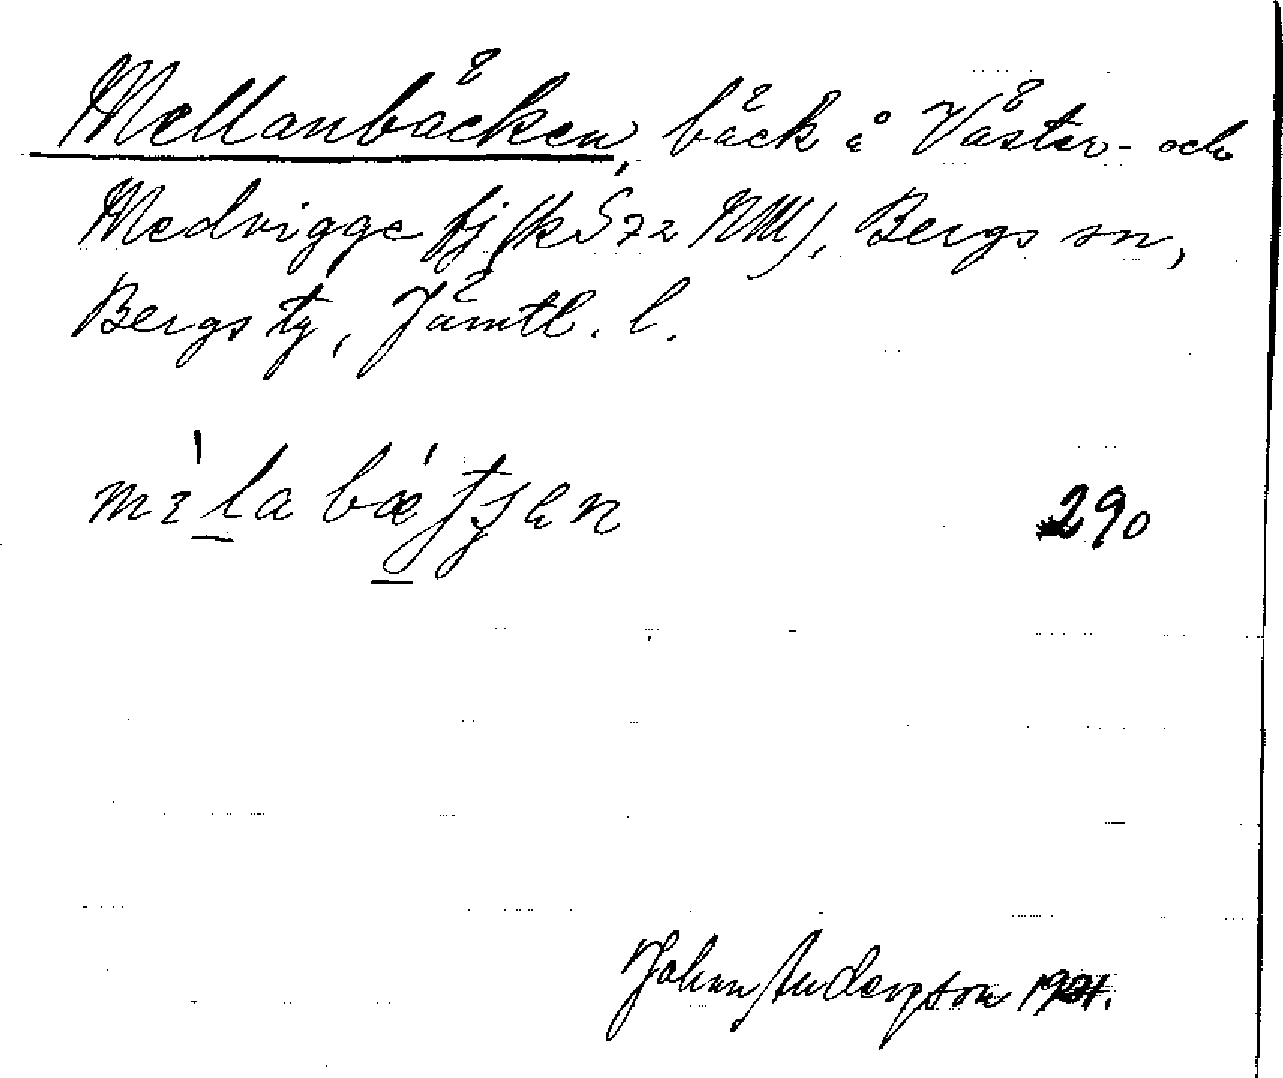 Mellanbäcken, bäck i Väster- och
Medvigge fj (k S 72 NM), Bergs sn,
Bergs tg, Jämtl. l.
290
Johan Anderson